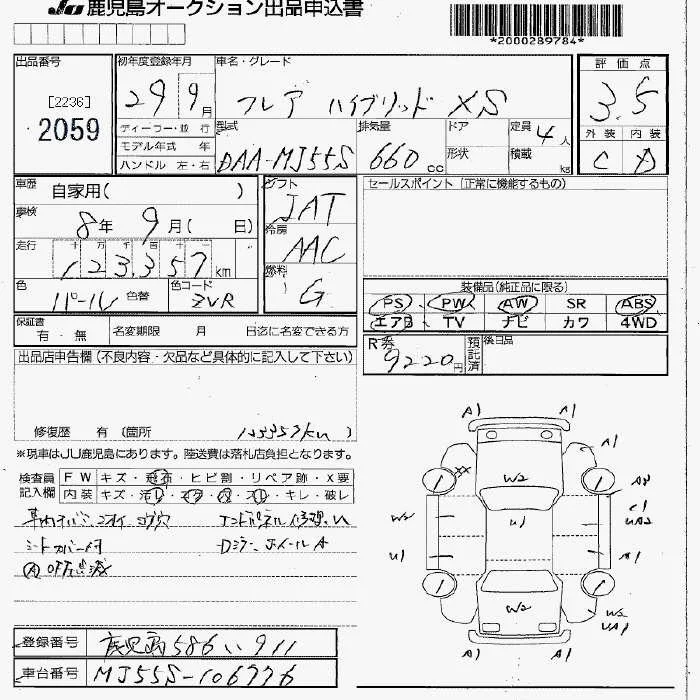 JU 鹿児島オークション出品申込書
*2000289784*
出品番号
[2236]
2059
初年度登録年月
29 9月
車名・グレード
フレア ハイブリッド XS
評価点
3.5
外装 内装
C D
ディーラー・並行
モデル年式 年
ハンドル 左・右
型式
DAA-MJ55S
排気量
660cc
ドア
形状
定員 4人
積載 kg
車歴
自家用( )
車検
8年 9月( 日)
走行
十 万 千 百 十 一
123,357km
色
パール
色替
色コード
ZVR
シフト
IAT
冷房
AAC
燃料
G
セールスポイント(正常に機能するもの)
装備品(純正品に限る)
PS PW AW SR ABS
エアB TV ナビ カワ 4WD
保証書
有・無
名変期限 月 日迄に名変できる方
R券
9220円
預託済
後日品
出品店申告欄(不良内容・欠品など具体的に記入して下さい)
修復歴 有(箇所 123357km)
※現車はJU鹿児島にあります。陸送費は落札店負担となります。
検査員記入欄
FW キズ・飛石・ヒビ割・リペア跡・X要
内装 キズ・汚レ・コゲ・穴・スレ・キレ・破レ
シートカバー付
A1 A1
A1
W2
W2
U1
U1
A1
W2
W2
UA1
A1 A1
登録番号 鹿児島 586 い 911
車台番号 MJ55S-106776